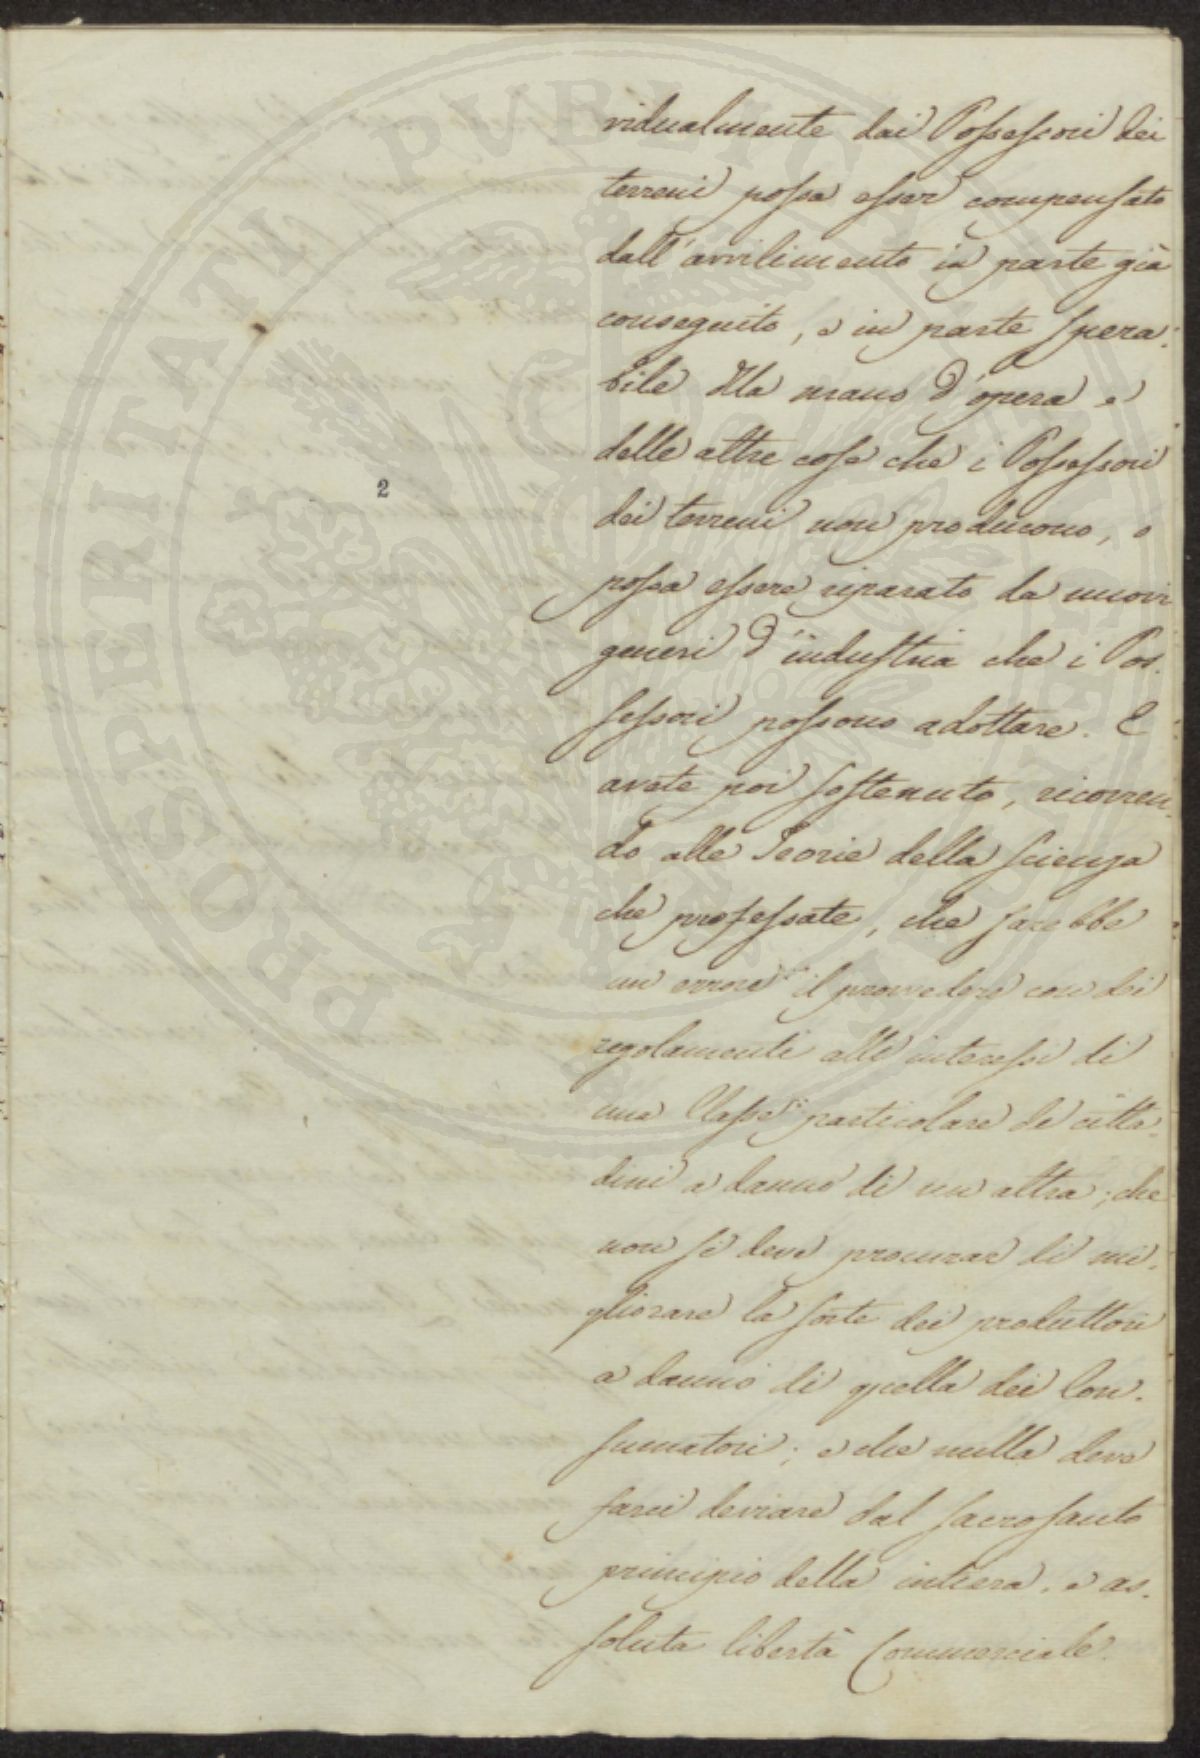 PROSPERITATI PUBLICAE AUGENDAE
vidualmente dai Possessori dei
terreni possa esser compensato
dall'avvilimento in parte già
conseguito, e in parte spera-
bile della mano d'opera e
delle altre cose che i Possessori
2
dei terreni non producono, o
possa essere riparato da nuovi
generi d'industria che i Pos-
sessori possono adottare. E
avete poi sostenuto, ricorren-
do alle Teorie della scienza
che professate, che sarebbe
un errore il provvedere con dei
regolamenti alli interessi di
una Classe particolare di citta-
dini a danno di un altra; che
non si deve procurar di mi-
gliorare la sorte dei produttori
a danno di quella dei Con-
sumatori; e che nulla deve
farci deviare dal sacrosanto
principio della intiera, e as-
soluta libertà Commerciale.